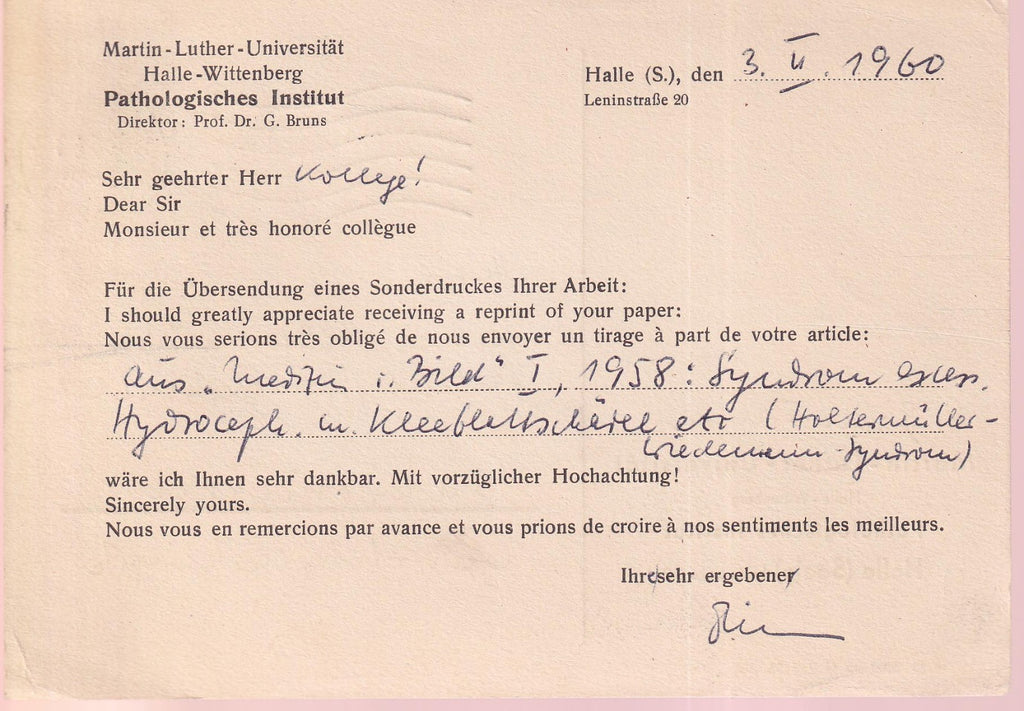 Martin-Luther-Universität
Halle-Wittenberg
Pathologisches Institut
Direktor: Prof. Dr. G. Bruns
Halle (S.), den 3. II. 1960
Leninstraße 20
Sehr geehrter Herr Kollege!
Dear Sir
Monsieur et très honoré collègue
Für die Übersendung eines Sonderdruckes Ihrer Arbeit:
I should greatly appreciate receiving a reprint of your paper:
Nous vous serions très obligé de nous envoyer un tirage à part de votre article:
aus „Medizin i. Bild“ I, 1958: Syndrom
Hydroceph. m. Kleeblattschädel etc (Holtermüller-
Wiedemann-Syndrom)
wäre ich Ihnen sehr dankbar. Mit vorzüglicher Hochachtung!
Sincerely yours.
Nous vous en remercions par avance et vous prions de croire à nos sentiments les meilleurs.
Ihre sehr ergebener